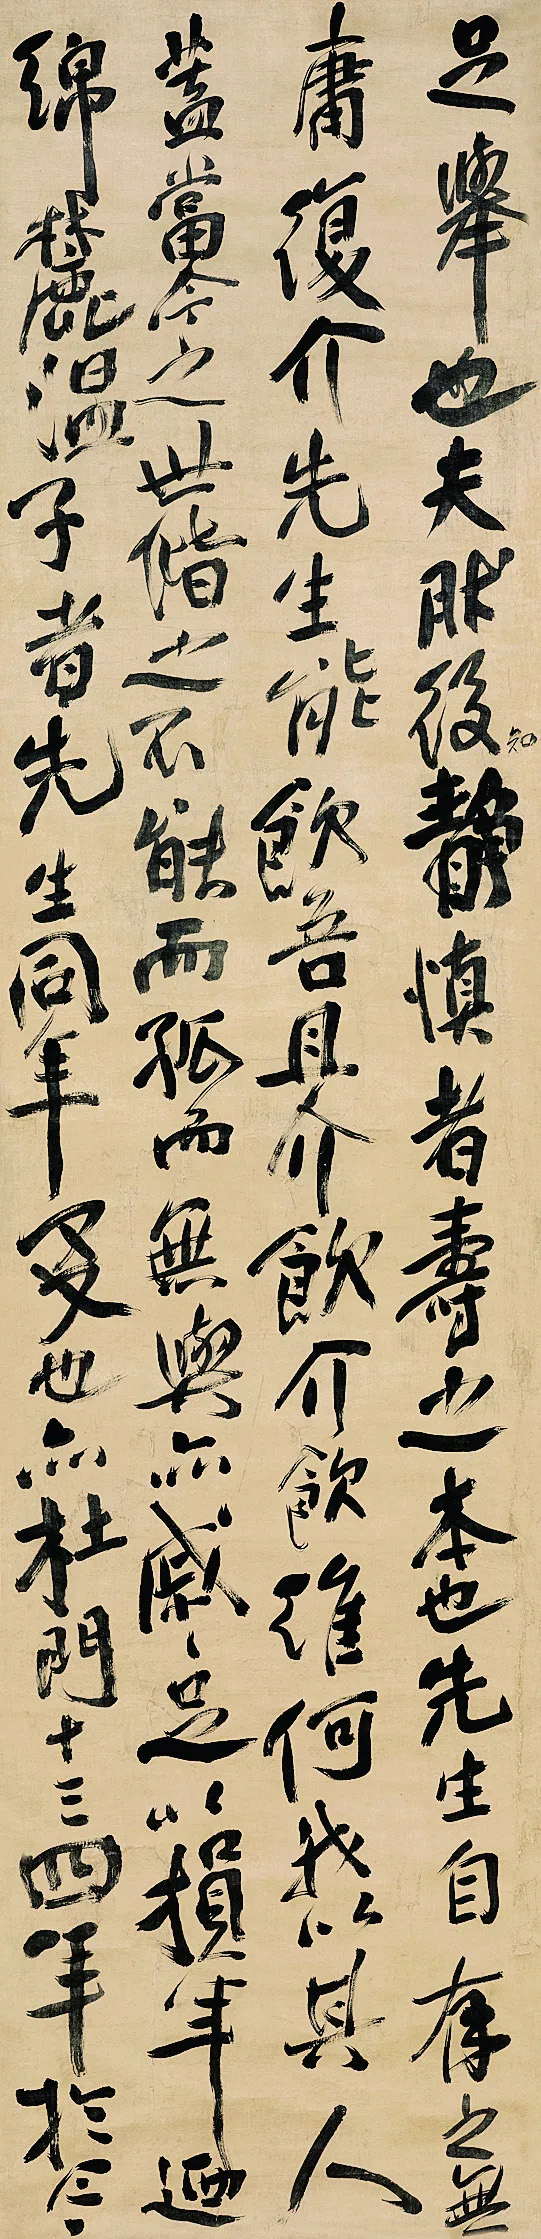 足舉也夫然後知靜慎者壽之本也先生自有之無
庸復介先生能飲吾且介飲介飲維何我以其人
蓋當今之世偕之不能而孤而無與亦戚戚足以損年迺
綿麓溫子者先生同年友也亦杜門十三四年於今